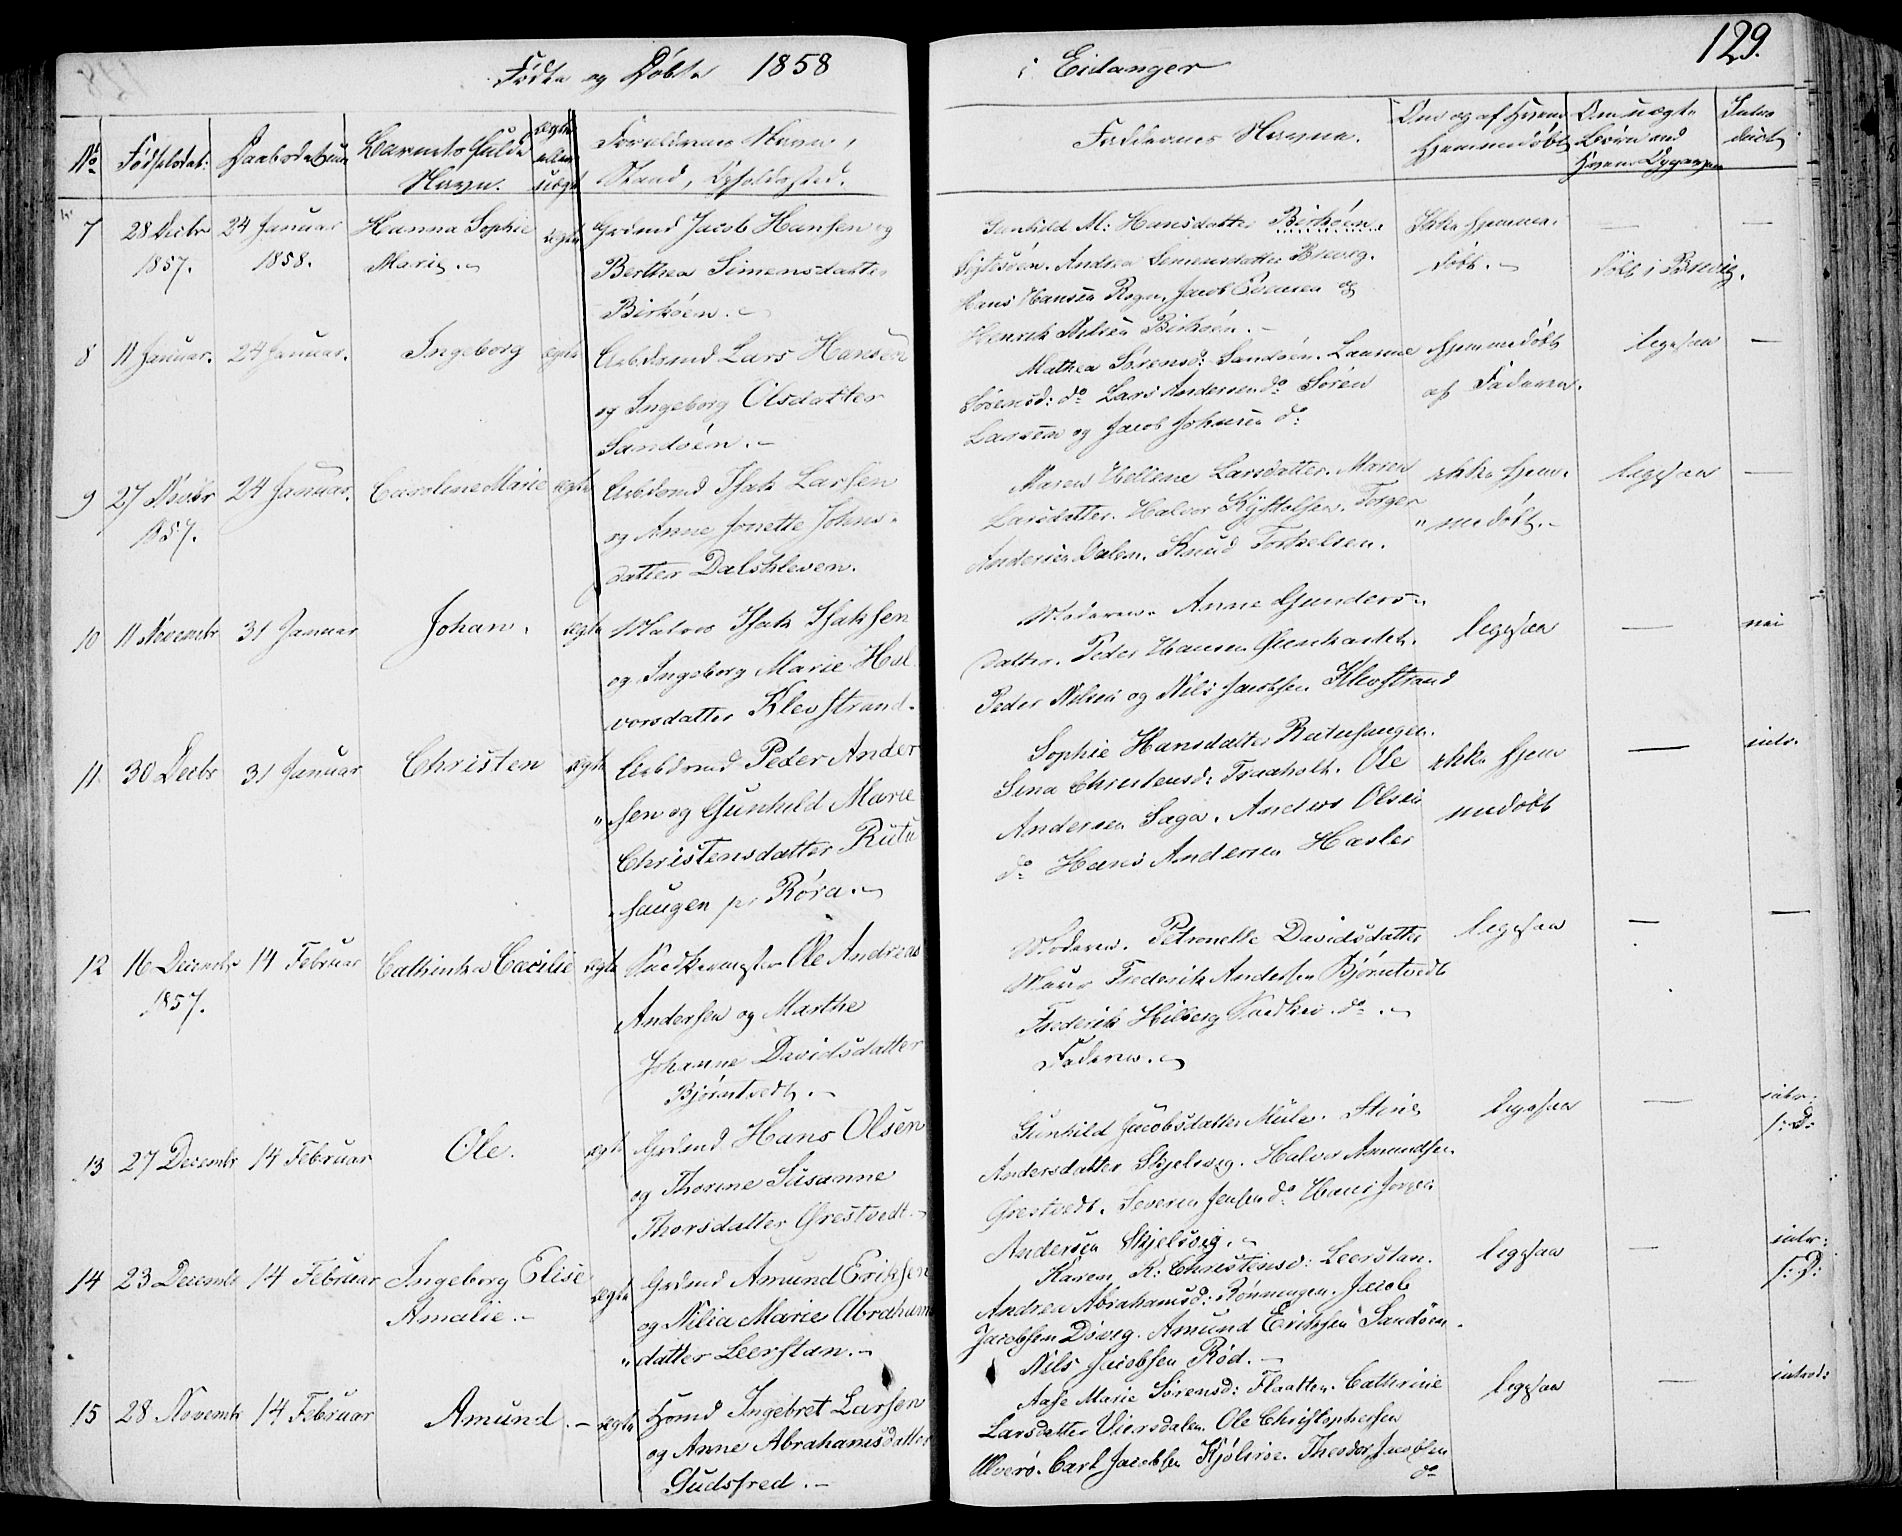 Fødte og Døbte 1858
i Eidanger
129.
No
Fødselsdat:
Daabsdatum
Barnets fulde Navn.
ægte eller uægt
Forældrenes Navn, Stand, Opholdssted.
Faddernes Navne.
Om og af hvem hjemmedøbt
Om uægte Børn
Intro duct
7
28 Decbr 1857.
24 Januar 1858.
Hanna Sophie Marie.
ægte
Grdmd Jacob Hansen og
Berthea Simensdatter
Birkøen.
Gunhild M: Hansdatter Birkøen.
Sigtesøen. Andrea Simensdatter Brevig.
Hans Hansen Rogn, Jacob Evensen og
Henrik Nilsen Birkøen.
Ikke hjemme-
døbt.
døbt i Brevig.
8
11 Januar.
24 Januar.
Ingeborg
ægte
Arbdsmd Lars Hansen
og Ingeborg Olsdatter
Sandøen.
Mathea Sørensd: Sandøen. Laurine
Sørensd: do Lars Andersen do Søren
Larsen og Jacob Johnsen do:
hjemmedøbt
af Faderen.
ligesaa
9
27 Novbr 1857.
24 Januar.
Caroline Marie
ægte
Arbdsmd Isak Larsen
og Anne Jonette Johns-
datter Dalskleven.
Maren Hellene Larsdatter. Maren
Larsdatter. Halvor Kystolsen. Torger
Andersen Dalen. Knud Torkelsen.
ikke hjem-
medøbt.
ligesaa
10
11 Novembr
31 Januar
Johan.
ægte
Matros Isak Isaksen
og Ingeborg Marie Hal
vorsdatter Klevstrand.
Moderen. Anne Gunders-
datter. Peder Hansen
Peder Nilsen og Nils Jacobsen Klevstrand
ligesaa
nei
11.
30 Decbr
31 Januar
Christen
ægte
Arbdsmd Peder Ander
sen og Gunhild Marie
Christensdatter Rutu
haugen pr Røra.
Sophie Hansdatter Rutuhaugen.
Sina Christensd: Traaholt. Ole
Andersen Saga. Anders Olsen
do Hans Andersen Hasler
ikke hjem
medøbt
intr.
12
16 Decembr 1857.
14 Februar
Cathinka Cæcilie
ægte
Ole Andreas
Andersen og Marthe
Johanne Davidsdatter
Bjørntvedt.
Moderen. Petronelle Davidsdatter
Frederik Andersen Bjørntvedt
Frederik Hilberg do.
Faderen.
ligesaa
13
27 Decembr
14 Februar
Ole.
ægte
Grdmd Hans Olsen
og Thorine Susanne
Thorsdatter Ørestvedt.
Gunhild Jacobsdatter Mule. Stine
Andersdatter Skjelsvig. Halvor Amundsen
Ørestvedt. Severin Jensen do. Hans Jørgen
Andersen Skjelsvig.
ligesaa
intr:
s: D:
14
23 Decembr
14 Februar
Ingeborg Elise
Amalie.
ægte
Grdmd Amund Eriksen
og Nilia Marie Abraham
datter Leerstan.
Karen K: Christensd: Leerstan.
Andrea Abrahamsd: Rønningen. Jacob
Jacobsen Døvig. Amund Eriksen Sandøen.
Nils Jacobsen Rød.
ligesaa
intr:
s: D:
15
28 Novembr
14 Februar
Amund.
ægte
Hsmd Ingebret Larsen
og Anne Abrahamsdatter
Gudsfred.
Aase Marie Sørensd: Flaatten. Cathrine
Larsdatter Viersdalen. Ole Christophersen
Alverø. Carl Jacobsen Kjølsrøe. Theodor Jacobsen
do
ligesaa
introd: